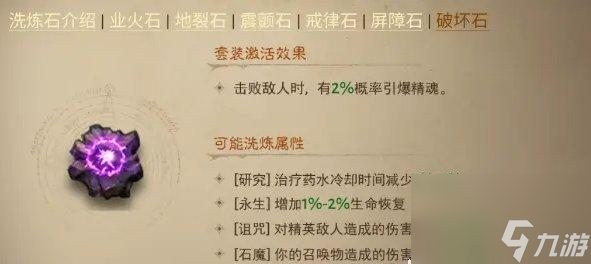 洗炼石介绍 | 业火石 | 地裂石 | 震颤石 | 戒律石 | 屏障石 | 破坏石
套装激活效果
击败敌人时，有2%概率引爆精魂。
可能洗炼属性
[研究] 治疗药水冷却时间减少
[永生] 增加1%-2%生命恢复
[诅咒] 对精英敌人造成的伤害
[石魔] 你的召唤物造成的伤害
九游